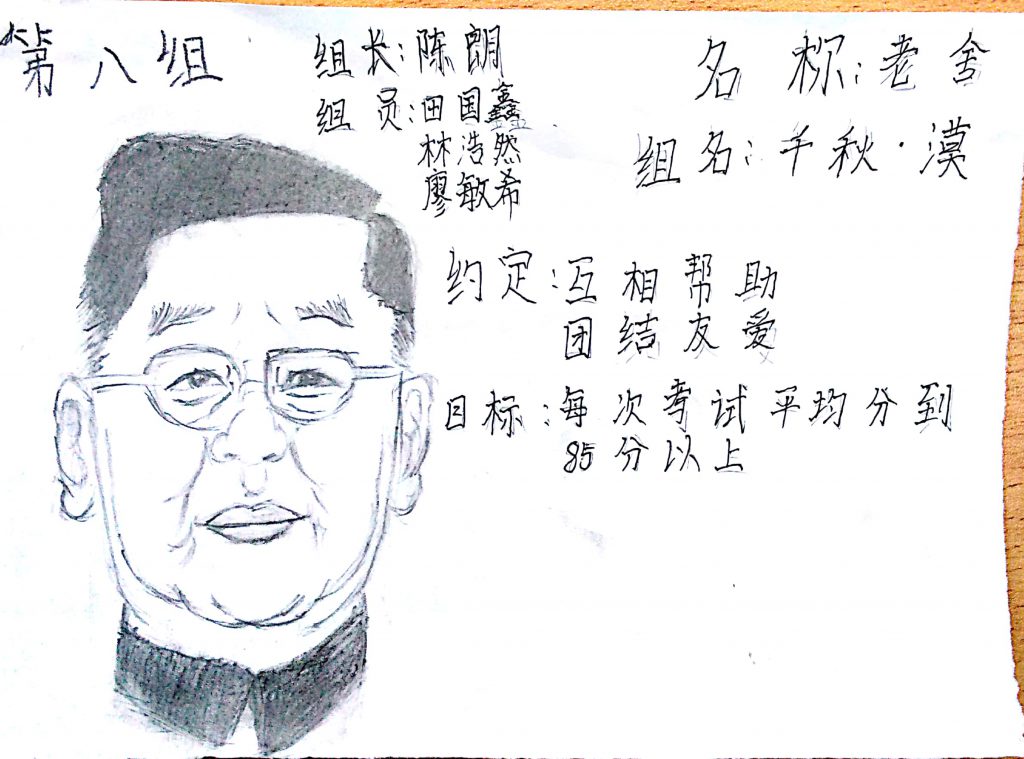 第八组
组长:陈朗
组员:田国鑫
林浩然
廖敏希
名称:老舍
组名:千秋·漠
约定:互相帮助
团结友爱
目标:每次考试平均分到
85分以上